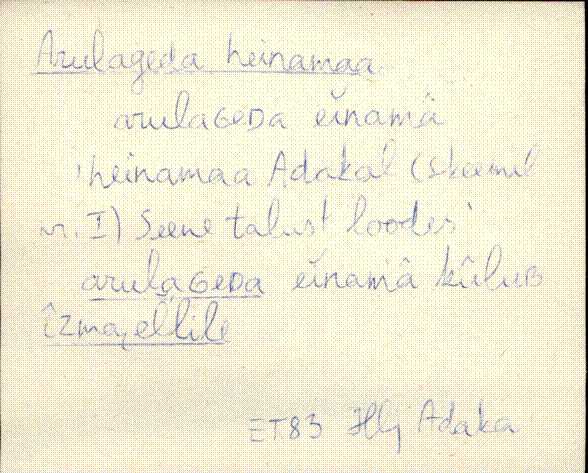 Arulageda heinamaa
arulaGEDA eĭnamâ
'heinamaa Adakal (skeemil
nr. I) Seene talust loodes'
arulaGEDA eĭnamâ kûluB
îzmajeĺĺile
ET83 Hlj Adaka